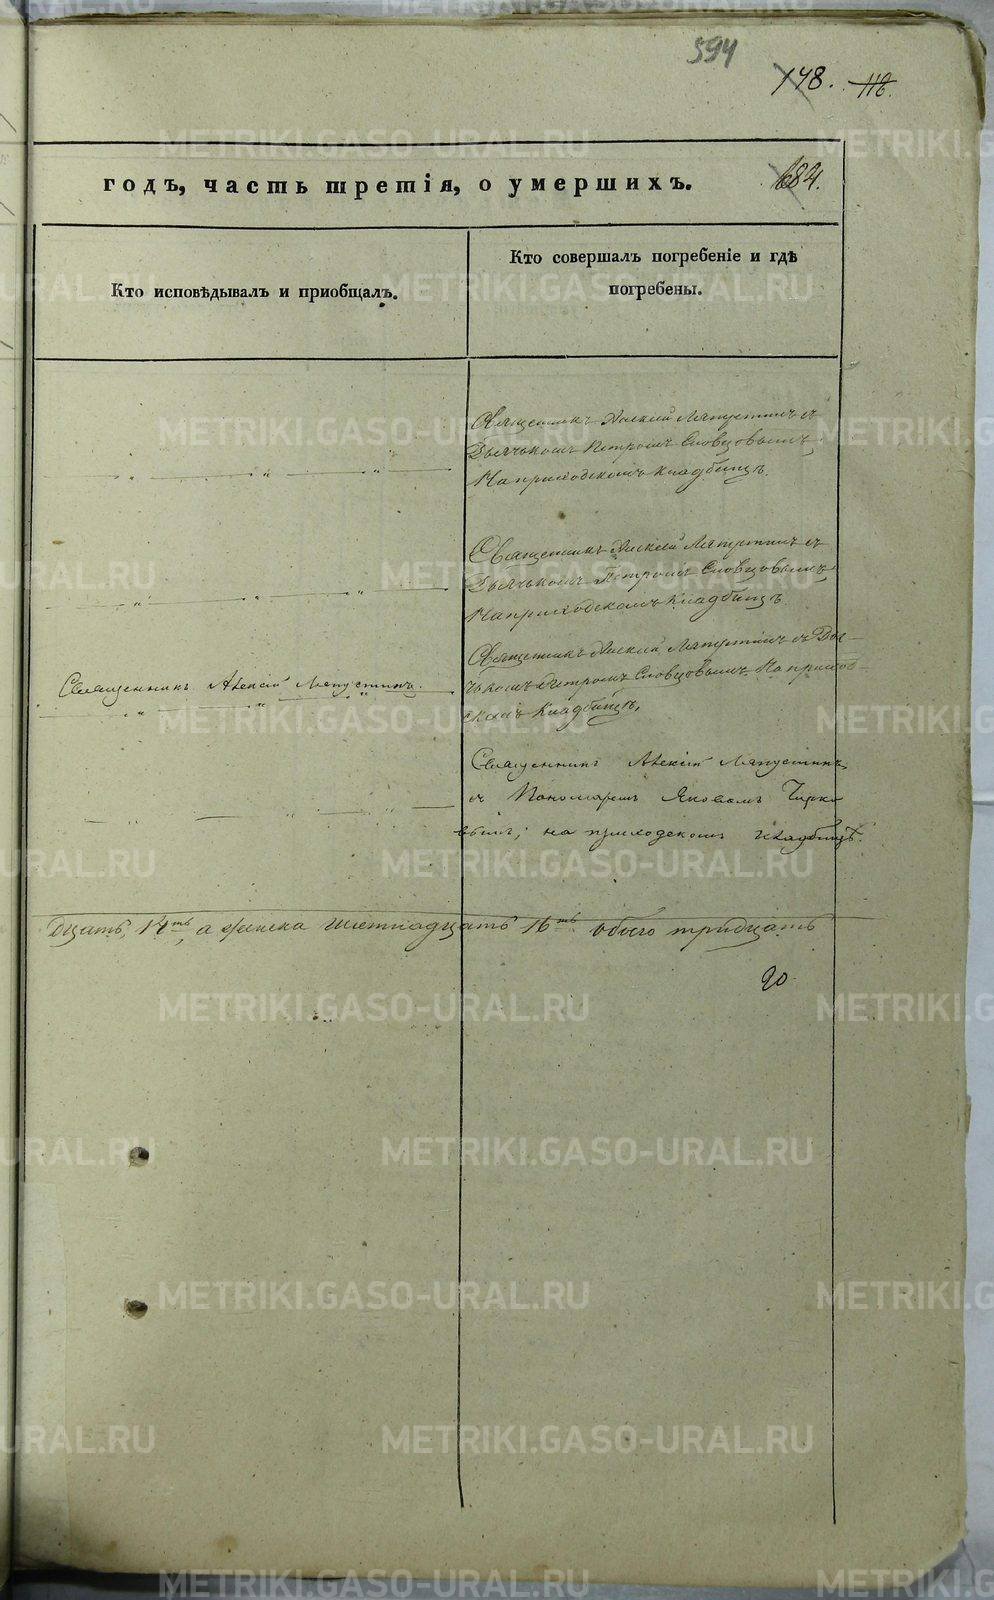 594
148. 118.
годъ, часть третія, о умершихъ. 684.
Кто исповѣдывалъ и пріобщалъ.
Кто совершалъ погребеніе и гдѣ
погребены.
Священникъ Алексій Ляпустинъ съ
Дьячькомъ Петромъ Словцовымъ,
На приходскомъ кладбищѣ.
Священникъ Алексій Ляпустинъ съ
Дьячькомъ Петромъ Словцовымъ,
На приходскомъ кладбищѣ
Священникъ Алексій Ляпустинъ.
Священникъ Алексій Ляпустинъ съ Дья-
чькомъ Петромъ Словцовымъ. На приход-
скомъ кладбищѣ,
Священникъ Алексій Ляпустинъ
съ Пономаремъ Яковомъ Чирко
вымъ, на приходскомъ кладбищѣ.
дцать, 14ть, а женска шестнадцать 16ть обоего тридцать
METRIKI.GASO-URAL.RU